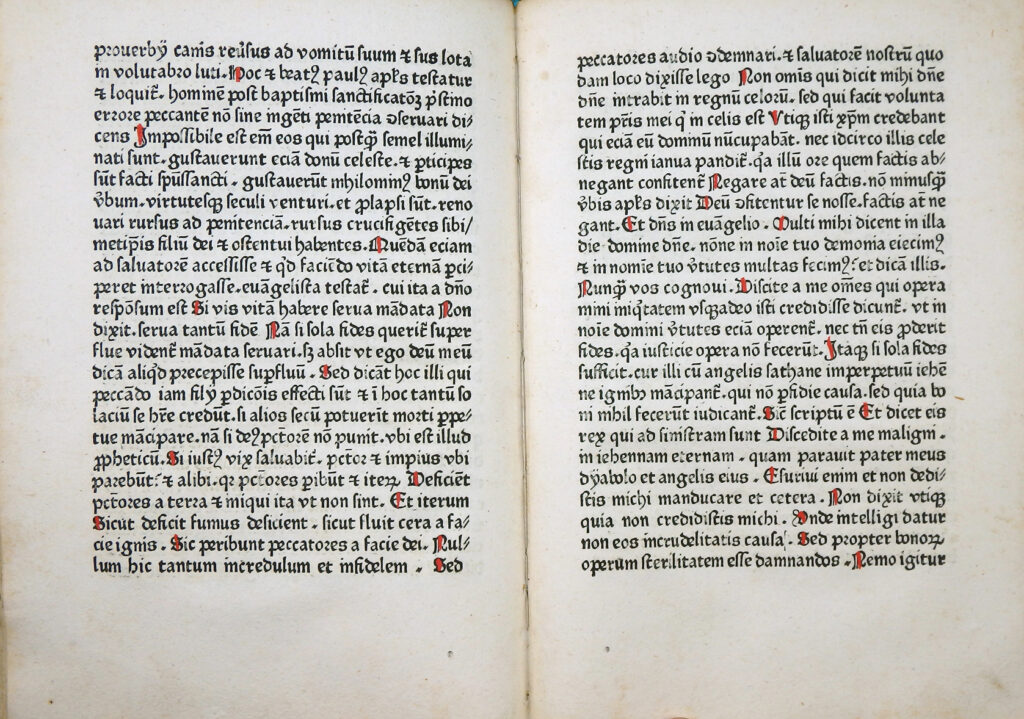 prouerbÿ canis reu͛sus ad vomitū suum ⁊ sus lota
in volutabro luti. Hoc ⁊ beatꝰ paulꝰ apl̄s testatur
⁊ loquit̄. hominē post baptismi sanctificatōꝫ p̄stino
errore peccantē nō sine ingēti penitēcia ꝯseruari di⸗
cens Impossibile est em̄ eos qui postqͣ̄ semel illumi⸗
nati sunt. gustauerunt eciā donū celeste. ⁊ ꝑticipes
sūt facti spūssancti. gustauerūt nihilominꝰ bonū dei
v͛bum. virtutesqꝫ seculi venturi. et ꝓlapsi sūt. reno
uari rursus ad penitenciā. rursus crucifigētes sibi/
metip̄is filiū dei ⁊ ostentui habentes. Quēdā eciam
ad saluatorē accessisse ⁊ qd̄ faciēdo vitā eternā ꝑci⸗
peret interrogasse. euāgelista testat̄. cui ita a dn̄o
respōsum est Si vis vitā habere serua mādata Non
dixit. serua tantū fidē Nā si sola fides querit̄ super
flue vident̄ mādata seruari. sꝫ absit vt ego deū meū
dicā aliqd̄ precepisse suꝑfluū. Sed dicāt hoc illi qui
peccādo iam filÿ ꝑdicōis effecti sūt ⁊ ī hoc tantū so
laciū se hr̄e credūt. si alios secū potuerūt morti ꝑpe⸗
tue mācipare. nā si deꝰ pctōrē nō punit. vbi est illud
ꝓpheticū. Si iustꝰ vix saluabit̄. pctōr ⁊ impius vbi
parebūt: ⁊ alibi. qr pctōres ꝑibūt ⁊ iteꝝ Deficiēt
pctōres a terra ⁊ iniqui ita vt non sint. Et iterum
Sicut deficit fumus deficient. sicut fluit cera a fa⸗
cie ignis. Sic peribunt peccatores a facie dei. Nul⸗
lum hic tantum incredulum et infidelem. Sed
peccatores audio ꝯdemnari. ⁊ saluatorē nostrū quo
dam loco dixisse lego Non om̄is qui dicit mihi dn̄e
dn̄e intrabit in regnū celorū. sed qui facit volunta
tem pr̄is mei q̄ in celis est Vtiqꝫ isti xp̄m credebant
qui eciā eū dominū nūcupabāt. nec idcirco illis cele
stis regni ianua pandit̄. qͣ illū ore quem factis ab⸗
negant confitent̄ Negare at̄ deū factis. nō minusqͣ̄
v͛bis apl̄s dixit Deū ꝯfitentur se nosse. factis at̄ ne
gant. Et dn̄s in euāgelio. Multi mihi dicent in illa
die domine dn̄e. nōne in noīe tuo demonia eiecimꝰ
⁊ in nomīe tuo v͛tutes multas fecimꝰ: et dicā illis.
Nunqͣ̄ vos cognoui. Discite a me om̄es qui opera
mini iniqͥtatem vsqꝫadeo isti credidisse dicunt̄. vt in
noīe domini v͛tutes eciā operent̄. nec tn̄ eis ꝓderit
fides. qͣ iusticie opera nō fecerūt. Itaqꝫ si sola fides
sufficit. cur illi cū angelis sathane imperpetuū iehē
ne ignibꝰ mācipant̄. qui nō ꝑfidie causa. sed quia bo
ni nihil fecerūt iudicant̄. Sic̄ scriptū ē Et dicet eis
rex qui ad sinistram sunt Discedite a me maligni.
in iehennam eternam. quam parauit pater meus
dÿabolo et angelis eius. Esuriui enim et non dedi⸗
stis michi manducare et cetera. Non dixit vtiqꝫ
quia non credidistis michi. Vnde intelligi datur
non eos incrudelitatis causa. Sed propter bonoꝝ
operum sterilitatem esse damnandos. Nemo igitur